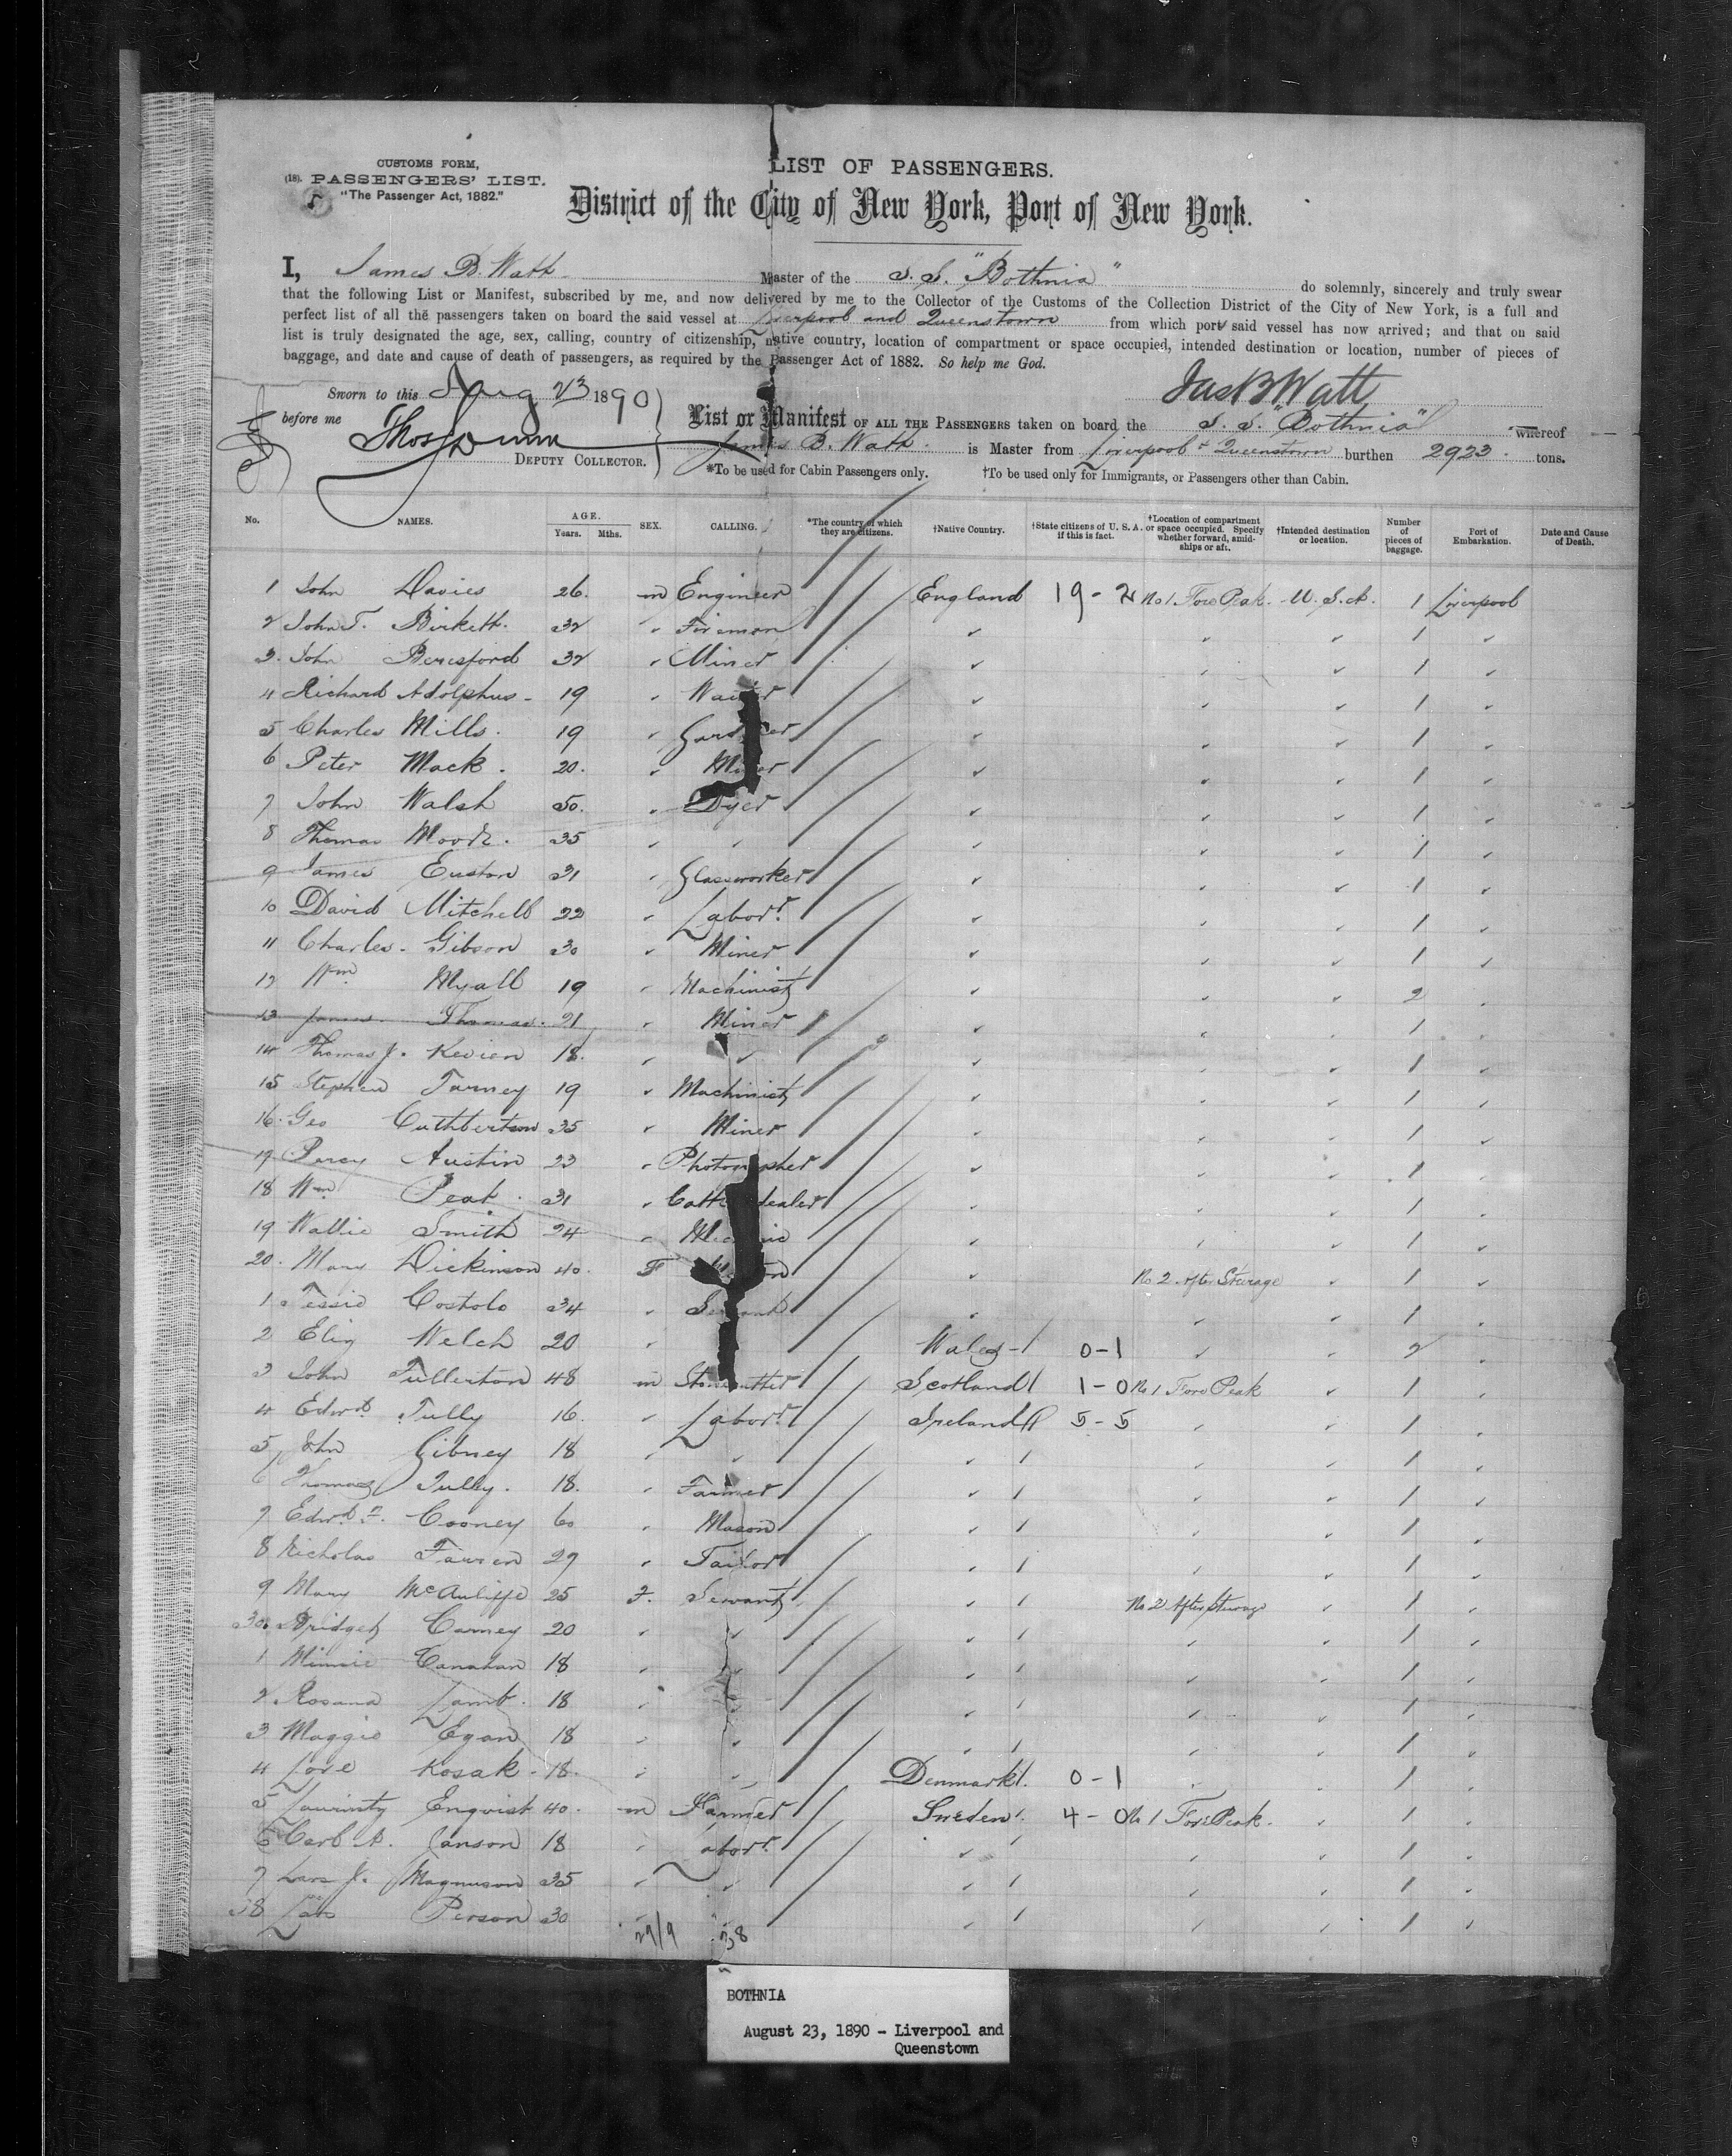 CUSTOMS FORM,
(18). PASSENGERS' LIST.
"The Passenger Act, 1882."
LIST OF PASSENGERS.
District of the City of New York, Port of New York.
I, James B. Watt Master of the S. S. "Bothnia" do solemnly, sincerely and truly swear
that the following List or Manifest, subscribed by me, and now delivered by me to the Collector of the Customs of the Collection District of the City of New York, is a full and
perfect list of all the passengers taken on board the said vessel at Liverpool and Queenstown from which port said vessel has now arrived; and that on said
list is truly designated the age, sex, calling, country of citizenship, native country, location of compartment or space occupied, intended destination or location, number of pieces of
baggage, and date and cause of death of passengers, as required by the Passenger Act of 1882. So help me God.
Jas B Watt
Sworn to this Aug 23 1890
before me
DEPUTY COLLECTOR.
List or Manifest OF ALL THE PASSENGERS taken on board the S. S. "Bothnia" whereof
James B. Watt is Master from Liverpool + Queenstown burthen 2923 tons.
*To be used for Cabin Passengers only. †To be used only for Immigrants, or Passengers other than Cabin.
No. NAMES. AGE. Years. Mths. SEX. CALLING. *The country of which they are citizens. †Native Country. †State citizens of U. S. A. if this is fact. †Location of compartment or space occupied. Specify whether forward, amidships or aft. †Intended destination or location. Number of pieces of baggage. Port of Embarkation. Date and Cause of Death.
1 John Davies 26. m Engineer England 19-2 No 1 Fore Peak. U.S.A. 1 Liverpool
2 John T. Birkett. 32 " Fireman " " " 1 "
3. John Beresford 32 " Miner " " " 1 "
4 Richard Adolphus 19 " Waiter " " " 1 "
5 Charles Mills. 19 " Gardener " " " 1 "
6 Peter Mack. 20. " Miner " " " 1 "
7 John Walsh 50. " Dyer " " " 1 "
8 Thomas 35 " " " " " 1 "
9 James Euston 31 " Glassworker " " " 1 "
10 David Mitchell 22 " Labor " " " 1 "
11 Charles Gibson 30 " Miner " " " 1 "
12 Wm Myall 19 " Machinist " " " 2 "
13 James Thomas. 21 " Miner " " " 1 "
14 Thomas J. 18. " " " " " 1 "
15 Stephen 19 " Machinist " " " 1 "
16. Geo Cuthbertson 35 " Miner " " " 1 "
17 Percy Austin 23 " Photographer " " " 1 "
18 Wm Peak. 31 " Cattle dealer " " " 1 "
19 Wallie Smith 24 " " " " 1 "
20. Mary Dickinson 40. F " No 2 After Steerage " 1 "
1 Costolo 34 " Servant " " " 1 "
2 Eliz Welch 20 " Wales 0-1 " " 2 "
3 John Fullerton 48 m Stonecutter Scotland 1-0 No 1 Fore Peak " 1 "
4 Edwd Tully 16. " Labor Ireland 5-5 " " 1 "
5 John Gibney 18 " " " " " 1 "
6 Thomas Tully. 18. " Farmer " " " 1 "
7 Edwd F. Cooney 60 " Mason " " " 1 "
8 Nicholas Farren 27 " Tailor " " " 1 "
9 Mary McAuliffe 25 F. Servant " No 2 After Steerage " 1 "
30. Bridget Carney 20 " " " " " 1 "
1 Minnie Canahan 18 " " " " " 1 "
2 Rosana Lamb. 18 " " " " " 1 "
3 Maggie Egan 18 " " " " " 1 "
4 Kosak 18. " " Denmark 0-1 " " 1 "
5 Enqvist 40. m Farmer Sweden 4-0 No 1 Fore Peak. " 1 "
6 Carl A. Janson 18 " Labor " " " 1 "
7 Lars J. Magnuson 35 " " " " " 1 "
38 Lars Person 30 " " " " " 1 "
29/9 38
BOTHNIA
August 23, 1890 - Liverpool and
Queenstown